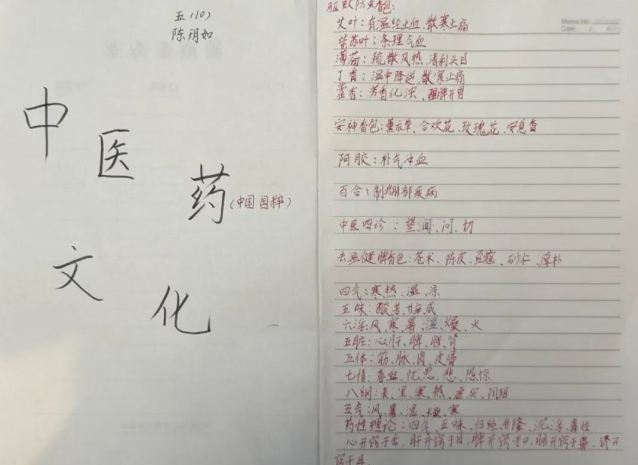 五(10)
陈玥如
中
医
药
(中国国粹)
文
化
驱蚊防虫香包:
艾叶:有温经止血,散寒止痛
紫苏叶:条理气血
薄荷:疏散风热,清利头目
丁香:温中降逆,散寒止痛
藿香:芳香化浊,醒脾开胃
安神香包:薰衣草、合欢花、玫瑰花、安息香
阿胶:补气冲血
百合:制肺部疾病
中医四诊:望、闻、问、切
去湿健脾香包:苍术、陈皮、豆蔻、砂仁、厚朴
四气:寒、热、温、凉
五味:酸苦甘辛咸
六淫:风、寒、暑、湿、燥、火
五脏:心、肝、脾、肺、肾
五体:筋、脉、肉、皮、骨
七情:喜、怒、忧、思、悲、恐、惊
八纲:表、里、寒、热、虚、实、阴、阳
五气:风、暑、湿、燥、寒
药性理论:四气、五味、归经、升降、沉浮、毒性
心开窍于舌,肝开窍于目,脾开窍于口,肺开窍于鼻,肾开
窍于耳